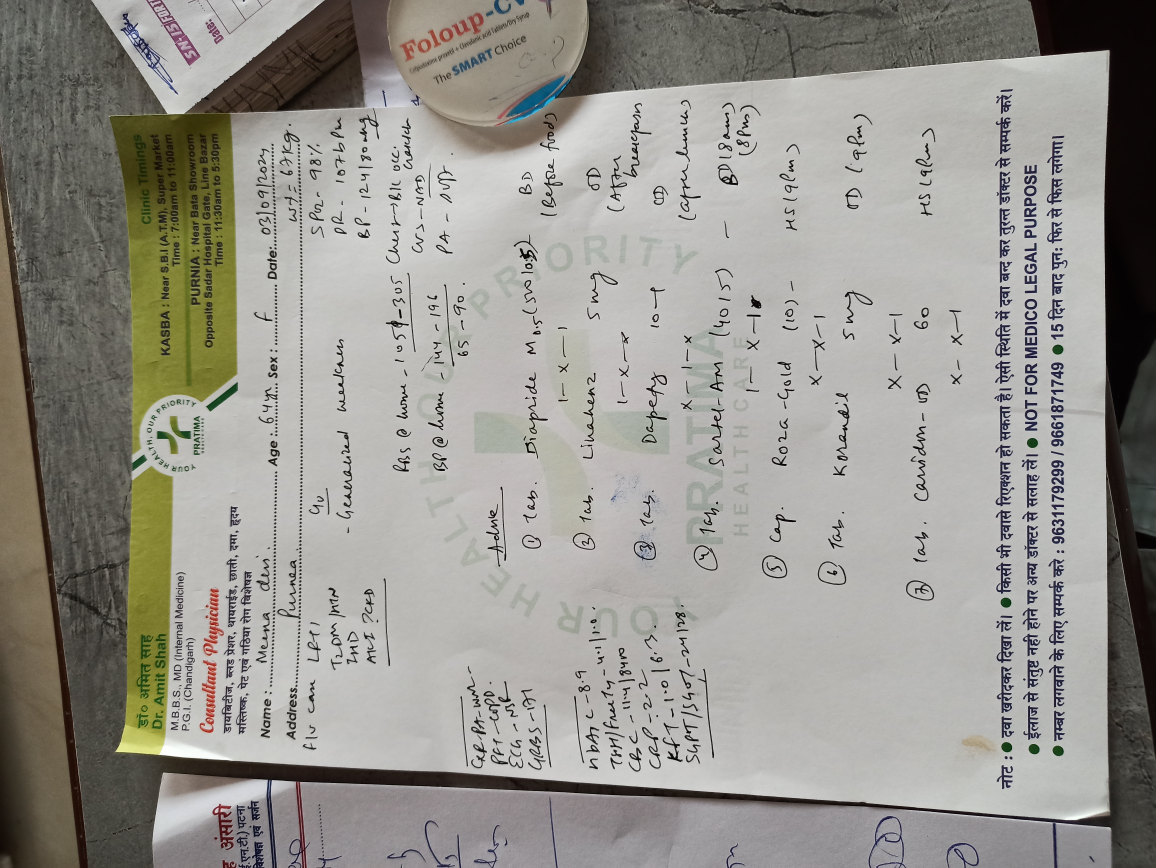 डॉ० अमित साह
Dr. Amit Shah
M.B.B.S., MD (Internal Medicine)
P.G.I. (Chandigarh)
Consultant Physician
डायबिटीज, ब्लड प्रेशर, थायराईड, छाती, दमा, हृदय
मस्तिष्क, पेट एवं गठिया रोग विशेषज्ञ
YOUR HEALTH, OUR PRIORITY
PRATIMA
Clinic Timings
KASBA : Near S.B.I (A.T.M), Super Market
Time : 7:00am to 11:00am
PURNIA : Near Bata Showroom
Opposite Sadar Hospital Gate, Line Bazar
Time : 11:30am to 5:30pm
Name : Meena devi Age : 64y Sex : F Date: 03/09/2024
Address Purnea wt = 67Kg.
f/u case LRTI
T2DM/HTN
IHD
AKI ?CKD
C/o
- Generalized weakness
SPO2 - 98%
PR - 107bpm
BP - 124/80mmg
RBS @ home - 105P - 305
BP @ home - 144 - 196
65 - 90.
Chest - B/L
CVS - NAD
PA - NAD.
CXR-PA-
PFT - COPD.
ECG - NSR
GRBS - 171
HbA1C - 8.9
TSH/FreeT4 - 4.1/1.0.
CBC - 11.4/8400
CRP - 2.2
KFT - 1.0/6.3.
SGPT/SGOT - 24/28.
Advice
① Tab. Diapride M0.5 (500/0.5) BD
1 - x - 1 (Before food)
② Tab. Linahenz 5mg OD
1 - x - x (After breakfast)
③ Tab. Dapefy 10 - 1 OD
x - 1 - x (after lunch)
④ Tab. Sartel-AM (40/5) - BD (8am)
1 - x - 1 (8pm)
⑤ Cap. Roza-Gold (10) - HS (9pm)
x - x - 1
⑥ Tab. Korandil 5mg OD (9pm)
x - x - 1
⑦ Tab. Cardim-OD 60 HS (9pm)
x - x - 1
YOUR HEALTH OUR PRIORITY
PRATIMA
HEALTHCARE
नोट : ● दवा खरीदकर दिखा लें। ● किसी भी दवासे रिएक्शन हो सकता है। ऐसी स्थिति में दवा बन्द कर तुरन्त डॉक्टर से सम्पर्क करें।
● ईलाज से संतुष्ट नही होने पर अन्य डॉक्टर से सलाह लें। ● NOT FOR MEDICO LEGAL PURPOSE
● नम्बर लगवाने के लिए सम्पर्क करे : 9631179299 / 9661871749 ● 15 दिन बाद पुन: फिर से फिस लगेगा।
Foloup-CV
The SMART Choice
Date:
अंसारी